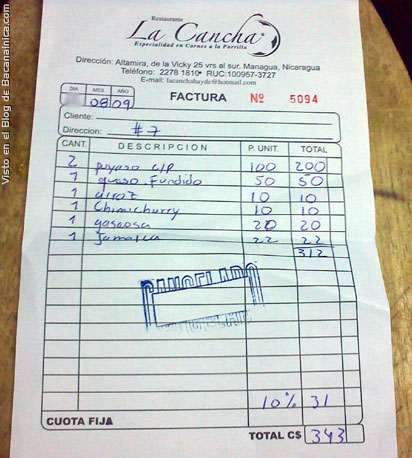 Restaurante
La Cancha
Especialidad en Carnes a la Parrilla
Dirección: Altamira, de la Vicky 25 vrs al sur. Managua, Nicaragua
Teléfono: 2278 1810• RUC:100957-3727
E-mail: lacanchahayde@hotmail.com
DIA MES AÑO
08 09
FACTURA Nº 5094
Cliente:
Direccion: #7
CANT. DESCRIPCION P. UNIT. TOTAL
2 puyaso c/p 100 200
1 queso fundido 50 50
1 arroz 10 10
1 Chimichurry 10 10
1 gaseosa 20 20
1 Jamaica 22 22
312
CANCELADO
10% 31
CUOTA FIJA
TOTAL C$ 343
Visto en el Blog de Bacanalnica.com